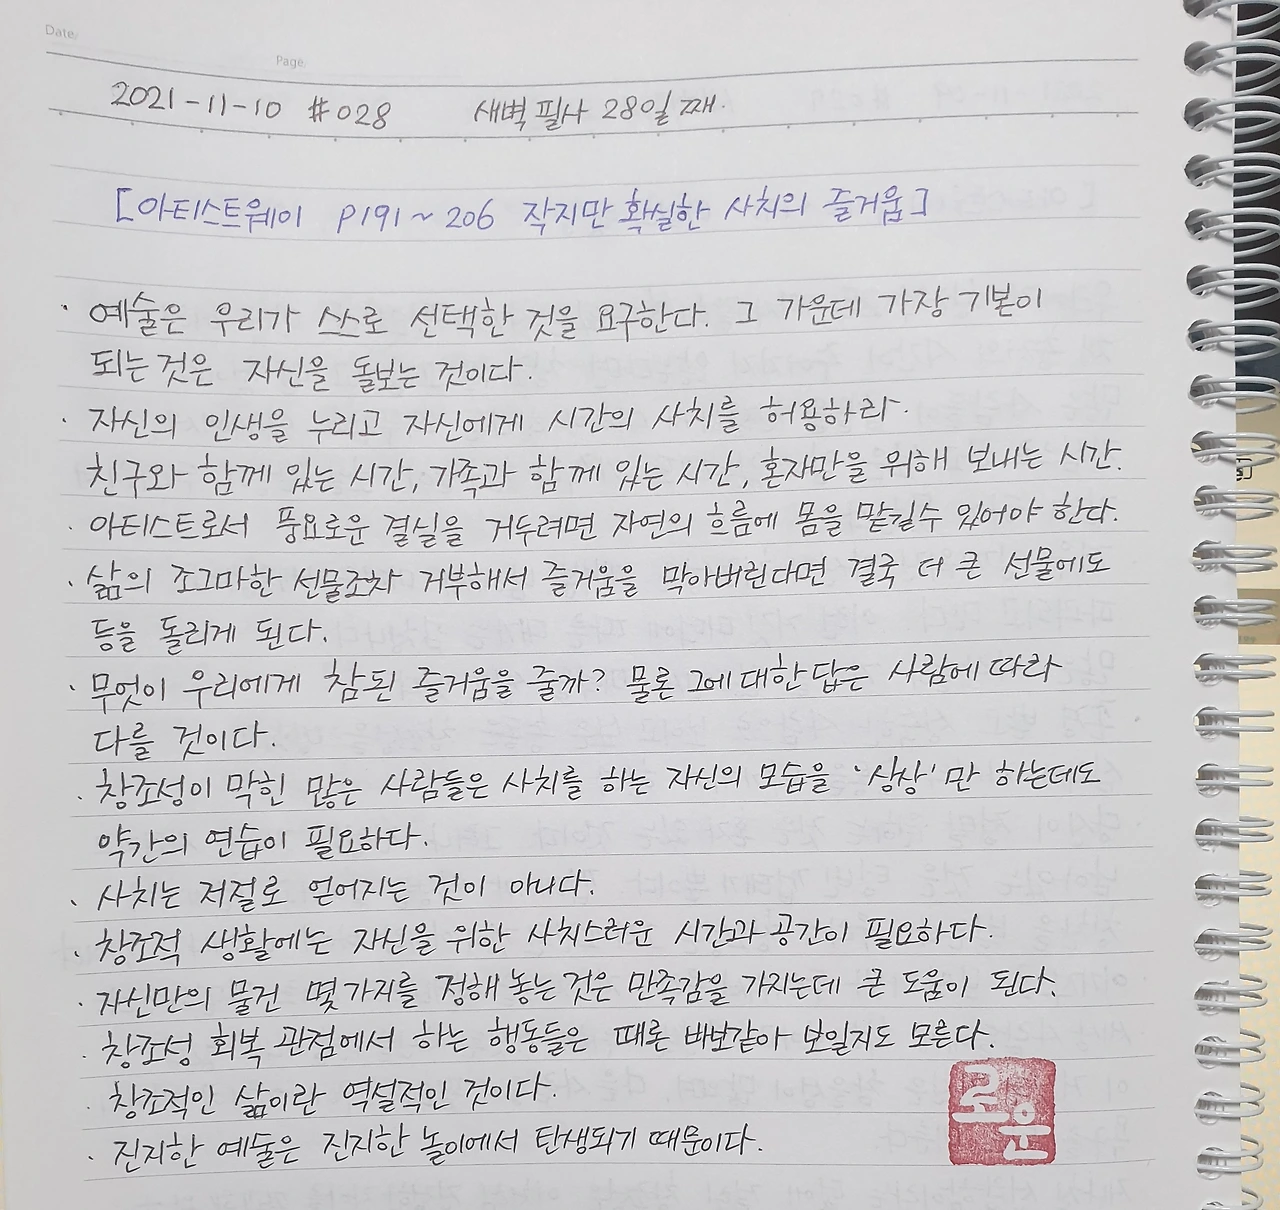 Date.
Page.
2021-11-10 #028 새벽 필사 28일째.
[아티스트웨이 P191~206 작지만 확실한 사치의 즐거움]
· 예술은 우리가 스스로 선택한 것을 요구한다. 그 가운데 가장 기본이
되는 것은 자신을 돌보는 것이다.
· 자신의 인생을 누리고 자신에게 시간의 사치를 허용하라.
친구와 함께 있는 시간, 가족과 함께 있는 시간, 혼자만을 위해 보내는 시간.
· 아티스트로서 풍요로운 결실을 거두려면 자연의 흐름에 몸을 맡길수 있어야 한다.
· 삶의 조그마한 선물조차 거부해서 즐거움을 막아버린다면 결국 더 큰 선물에도
등을 돌리게 된다.
· 무엇이 우리에게 참된 즐거움을 줄까? 물론 그에 대한 답은 사람에 따라
다를 것이다.
· 창조성이 막힌 많은 사람들은 사치를 하는 자신의 모습을 '상상'만 하는데도
약간의 연습이 필요하다.
· 사치는 저절로 얻어지는 것이 아니다.
· 창조적 생활에는 자신을 위한 사치스러운 시간과 공간이 필요하다.
· 자신만의 물건 몇 가지를 정해 놓는 것은 만족감을 가지는데 큰 도움이 된다.
· 창조성 회복 관점에서 하는 행동들은 때론 바보같아 보일지도 모른다.
· 창조적인 삶이란 역설적인 것이다.
· 진지한 예술은 진지한 놀이에서 탄생되기 때문이다.
로운